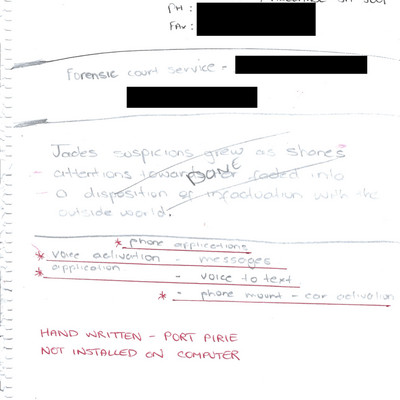 PH :
FAX :
Forensic court service -
Jades suspicions grew as shares
- attentions towards faded into
DONE
- a disposition of infactuation with the
outside world.
* phone applications
* voice activation - messages
* application - voice to text
* - phone mount - car activation
HAND WRITTEN - PORT PIRIE
NOT INSTALLED ON COMPUTER